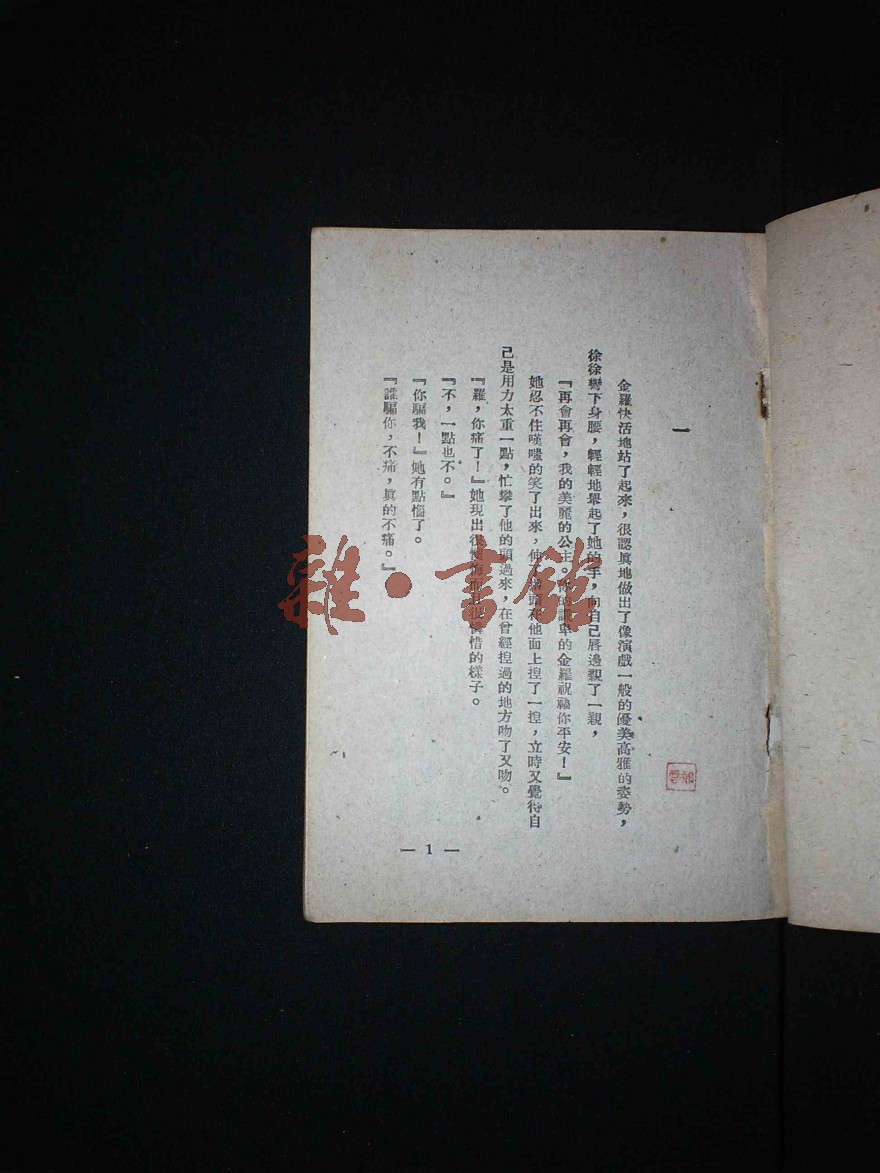 一
金羅快活地站了起來，很認眞地做出了像演戲一般的優美高雅的姿勢，
徐徐彎下身腰，輕輕地舉起了她的手，向自己唇邊親了一親，
『再會再會，我的美麗的公主。你的謙卑的金羅祝福你平安！』
她忍不住嘆嗤的笑了出來，伸了指頭在他面上揑了一揑，立時又覺得自
己是用力太重一點，忙攀了他的頭過來，在曾經揑過的地方吻了又吻。
『羅，你痛了！』她現出很懊悔而且很憐惜的樣子。
『不，一點也不。』
『你騙我！』她有點惱了。
『誰騙你，不痛，眞的不痛。』
— 1 —
雜·書館